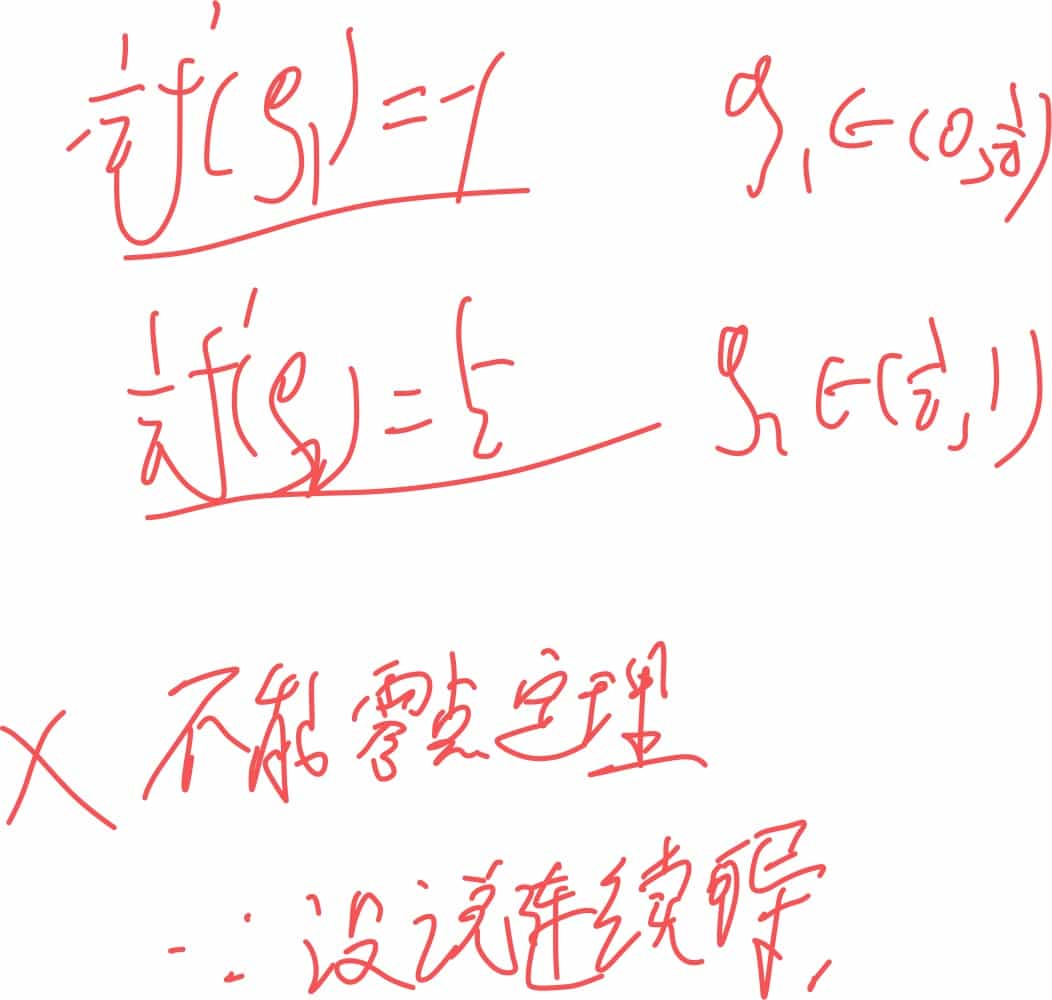 ½f'(ξ₁) = -1 ξ₁ ∈ (0, ½)
½f'(ξ₂) = ½ ξ₂ ∈ (½, 1)
× 不能零点定理
∵ 没说连续可导.